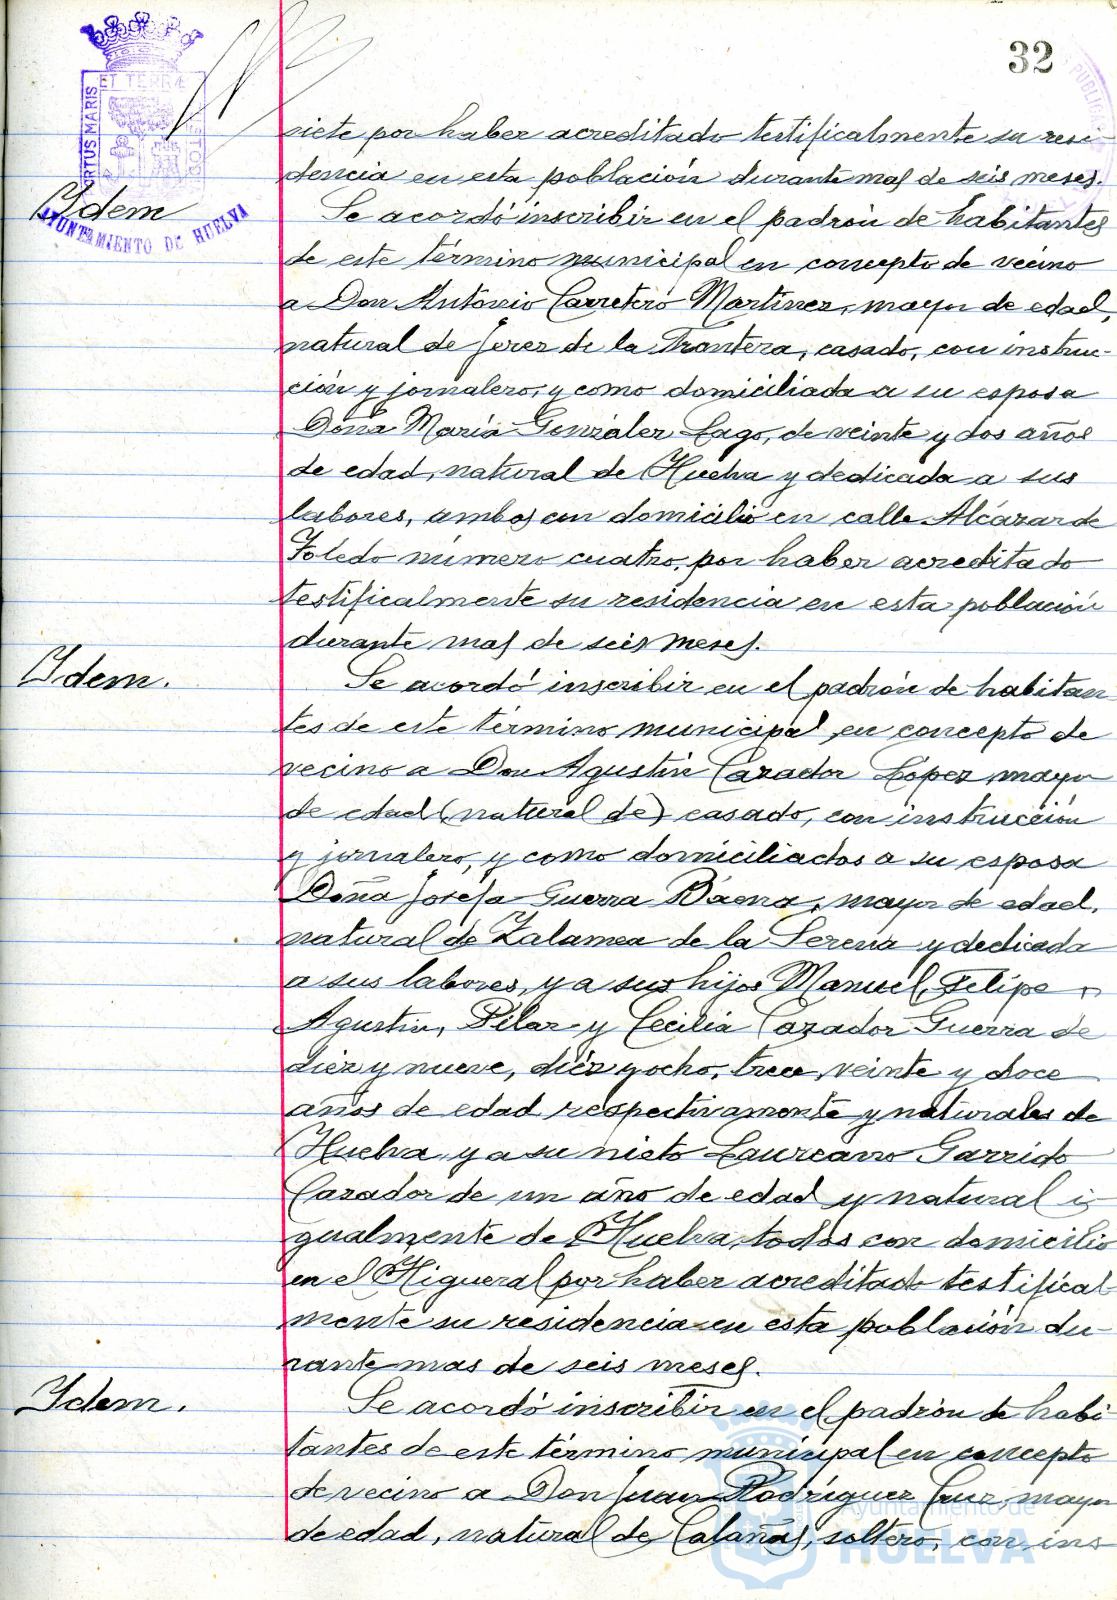 32
ET TERRÆ
PORTUS MARIS
AYUNTAMIENTO DE HUELVA
siete por haber acreditado testificalmente su resi-
dencia en esta población durante mas de seis meses.
Idem
Se acordó inscribir en el padrón de habitantes
de este término municipal en concepto de vecino
a Don Antonio Carretero Martínez, mayor de edad,
natural de Jerez de la Frontera, casado, con instruc-
ción y jornalero, y como domiciliada a su esposa
Doña María González Lago, de veinte y dos años
de edad, natural de Huelva y dedicada a sus
labores, ambos con domicilio en calle Alcázar de
Toledo número cuatro, por haber acreditado
testificalmente su residencia en esta población
durante mas de seis meses.
Idem.
Se acordó inscribir en el padrón de habitan
tes de este término municipal en concepto de
vecino a Don Agustín Cazador López mayor
de edad (natural de) casado, con instrucción
y jornalero, y como domiciliados a su esposa
Doña Josefa Guerra Baena, mayor de edad,
natural de Zalamea de la Serena y dedicada
a sus labores, y a sus hijos Manuel, Felipe,
Agustín, Pilar y Cecilia Cazador Guerra de
diez y nueve, diez y ocho, trece, veinte y doce
años de edad respectivamente y naturales de
Huelva, y a su nieto Laureano Garrido
Cazador de un año de edad y natural i-
gualmente de Huelva, todos con domicilio
en el Higueral por haber acreditado testifical
mente su residencia en esta población du-
rante mas de seis meses.
Idem.
Se acordó inscribir en el padrón de habi-
tantes de este término municipal en concepto
de vecino a Don Juan Rodríguez Cruz, mayor
de edad, natural de Calañas, soltero, con ins
Ayuntamiento de
HUELVA